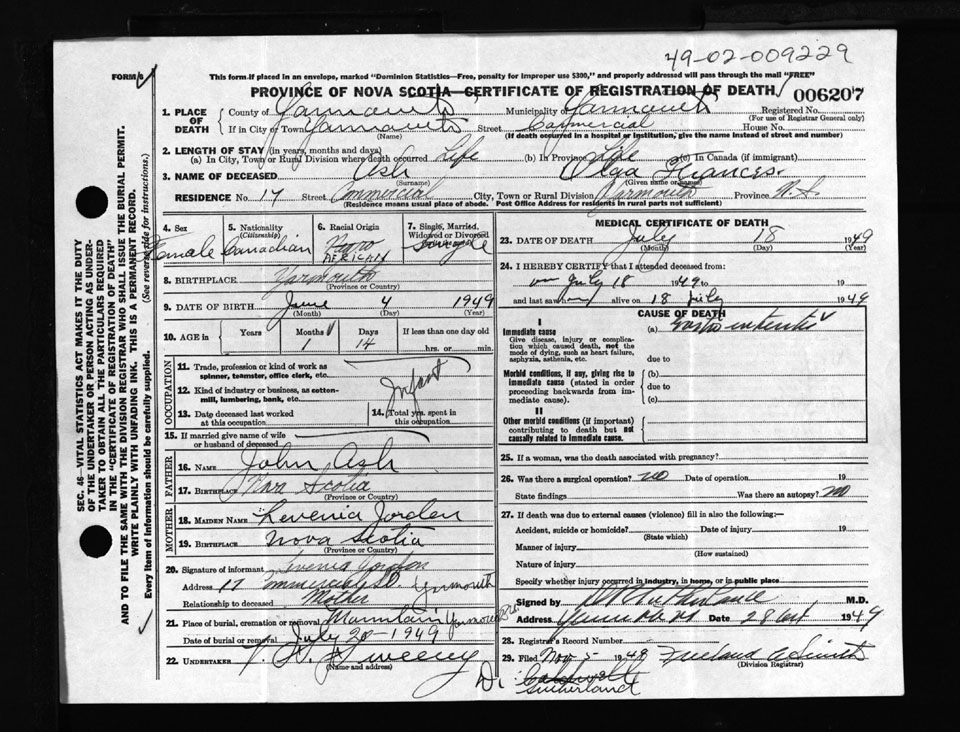 49-02-009229
FORM 6
This form if placed in an envelope, marked "Dominion Statistics—Free, penalty for improper use $300," and properly addressed will pass through the mail "FREE"
PROVINCE OF NOVA SCOTIA—CERTIFICATE OF REGISTRATION OF DEATH 006207
SEC. 46—VITAL STATISTICS ACT MAKES IT THE DUTY
OF THE UNDERTAKER OR PERSON ACTING AS UNDER-
TAKER TO OBTAIN ALL THE PARTICULARS REQUIRED
IN THE "CERTIFICATE OF REGISTRATION OF DEATH"
AND TO FILE THE SAME WITH THE DIVISION REGISTRAR WHO SHALL ISSUE THE BURIAL PERMIT.
WRITE PLAINLY WITH UNFADING INK. THIS IS A PERMANENT RECORD.
Every item of information should be carefully supplied. (See reverse side for instructions.)
1. PLACE OF DEATH County of Yarmouth Municipality of Yarmouth Registered No.
(For use of Registrar General only)
If in City or Town Yarmouth Street Commercial House No.
(Name) (If death occurred in a hospital or institution, give the name instead of street and number)
2. LENGTH OF STAY (in years, months and days)
(a) In City, Town or Rural Division where death occurred Life (b) In Province Life (c) In Canada (if immigrant)
3. NAME OF DECEASED Ash Olga Frances
(Surname) (Given name or names)
RESIDENCE No. 17 Street Commercial City, Town or Rural Division Yarmouth Province N.S.
(Residence means usual place of abode. Post Office Address for residents in rural parts not sufficient)
4. Sex Female
5. Nationality (Citizenship) Canadian
6. Racial Origin Negro AFRICAN
7. Single, Married, Widowed or Divorced Single
8. BIRTHPLACE Yarmouth
(Province or Country)
9. DATE OF BIRTH June 4 1949
(Month) (Day) (Year)
10. AGE in Years Months 1 Days 14 If less than one day old
hrs. or min.
OCCUPATION
11. Trade, profession or kind of work as
spinner, teamster, office clerk, etc.
12. Kind of industry or business, as cotton-
mill, lumbering, bank, etc. Infant
13. Date deceased last worked
at this occupation
14. Total yrs. spent in
this occupation
15. If married give name of wife
or husband of deceased
FATHER
16. NAME John Ash
17. BIRTHPLACE Nova Scotia
(Province or Country)
MOTHER
18. MAIDEN NAME Levenia Jorden
19. BIRTHPLACE Nova Scotia
(Province or Country)
20. Signature of informant Levenia Jordon
Address 17 Commercial St. Yarmouth
Relationship to deceased Mother
21. Place of burial, cremation or removal Mountain Yarmouth
Date of burial or removal July 20-1949
22. UNDERTAKER Sweeny
(Name and address)
MEDICAL CERTIFICATE OF DEATH
23. DATE OF DEATH July 18 1949
(Month) (Day)
24. I HEREBY CERTIFY that I attended deceased from:
on July 18 1949 to
and last saw h alive on 18 July 1949
CAUSE OF DEATH
I
Immediate cause (a)
Give disease, injury or complica-
tion which caused death, not the
mode of dying, such as heart failure,
asphyxia, asthenia, etc. due to
Morbid conditions, if any, giving rise to (b)
immediate cause (stated in order
proceeding backwards from im-
mediate cause). due to
(c)
II
Other morbid conditions (if important)
contributing to death but not
causally related to immediate cause.
25. If a woman, was the death associated with pregnancy?
26. Was there a surgical operation? no Date of operation 19
State findings Was there an autopsy? no
27. If death was due to external causes (violence) fill in also the following:—
Accident, suicide or homicide? Date of injury 19
(State which)
Manner of injury
(How sustained)
Nature of injury
Specify whether injury occurred in industry, in home, or in public place
Signed by M.D.
Address Date 28 Oct 1949
28. Registrar's Record Number
29. Filed Nov 5 1949 Freeland A Smith
(Division Registrar)
Dr. Caldwell
Sutherland